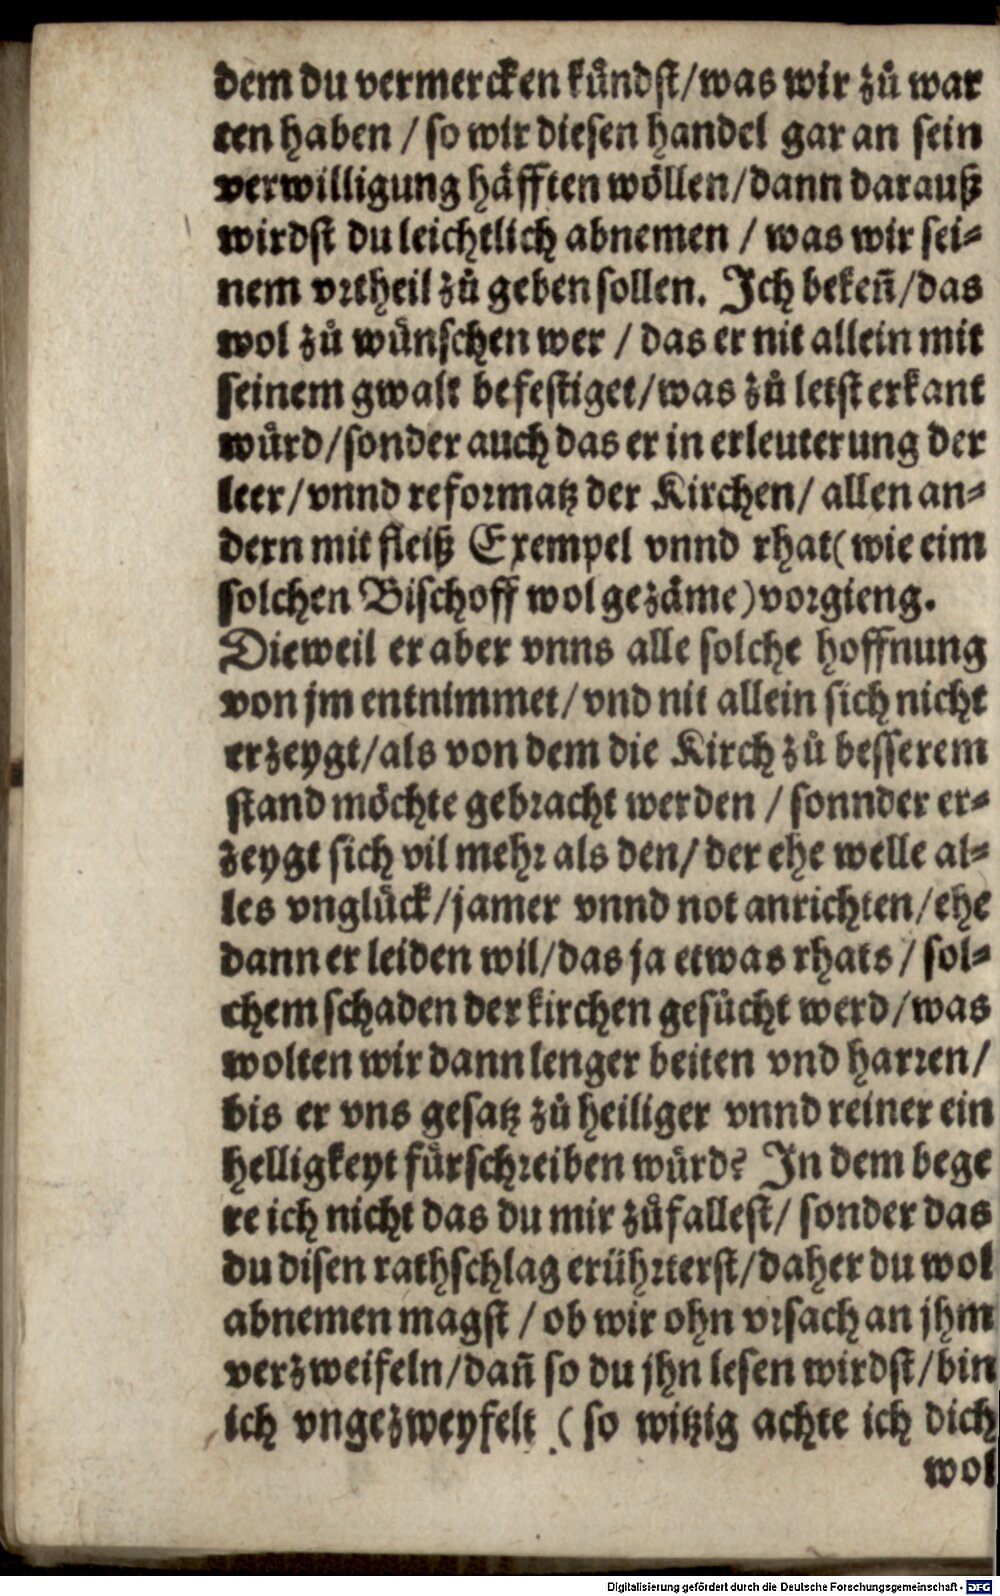 dem du vermercken kündst/was wir zů war
ten haben / so wir diesen handel gar an sein
verwilligung häfften wöllen/dann darauß
wirdst du leichtlich abnemen / was wir sei⸗
nem vrtheil zů geben sollen. Ich bekeñ/das
wol zů wünschen wer / das er nit allein mit
seinem gwalt befestiget/was zů letst erkant
würd/sonder auch das er in erleuterung der
leer/vnnd reformatz der Kirchen/ allen an⸗
dern mit fleiß Exempel vnnd rhat(wie eim
solchen Bischoff wol gezäme)vorgieng.
Dieweil er aber vnns alle solche hoffnung
von jm entnimmet/vnd nit allein sich nicht
erzeygt/als von dem die Kirch zů besserem
stand möchte gebracht werden / sonnder er⸗
zeygt sich vil mehr als den/ der ehe welle al⸗
les vnglück/jamer vnnd not anrichten/ehe
dann er leiden wil/das ja etwas rhats / sol⸗
chem schaden der kirchen gesůcht werd/was
wolten wir dann lenger beiten vnd harren/
bis er vns gesatz zů heiliger vnnd reiner ein
helligkeyt fürschreiben würd? In dem bege
re ich nicht das du mir zůfallest/ sonder das
du disen rathschlag erührterst/daher du wol
abnemen magst / ob wir ohn vrsach an jhm
verzweifeln/dañ so du jhn lesen wirdst/bin
ich vngezweyfelt (so witzig achte ich dich
wol
Digitalisierung gefördert durch die Deutsche Forschungsgemeinschaft - DFG